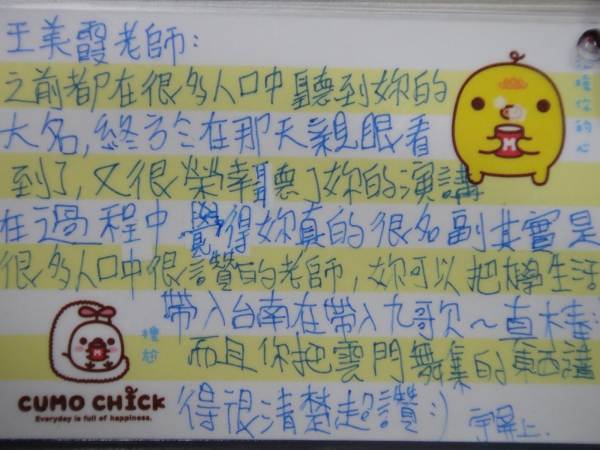 王美霞老師:
之前都在很多人口中聽到妳的
大名,終於在那天親眼看
到了,又很榮幸聽了妳的演講
在過程中覺得妳真的很名副其實是
很多人口中很讚的老師,妳可以把樂學生活
帶入台南在帶入九歌~真棒
而且你把雲門舞集的東西講
得很清楚超讚:)
溫暖你的心
M
M
CUMO CHICK
Everyday is full of happiness.